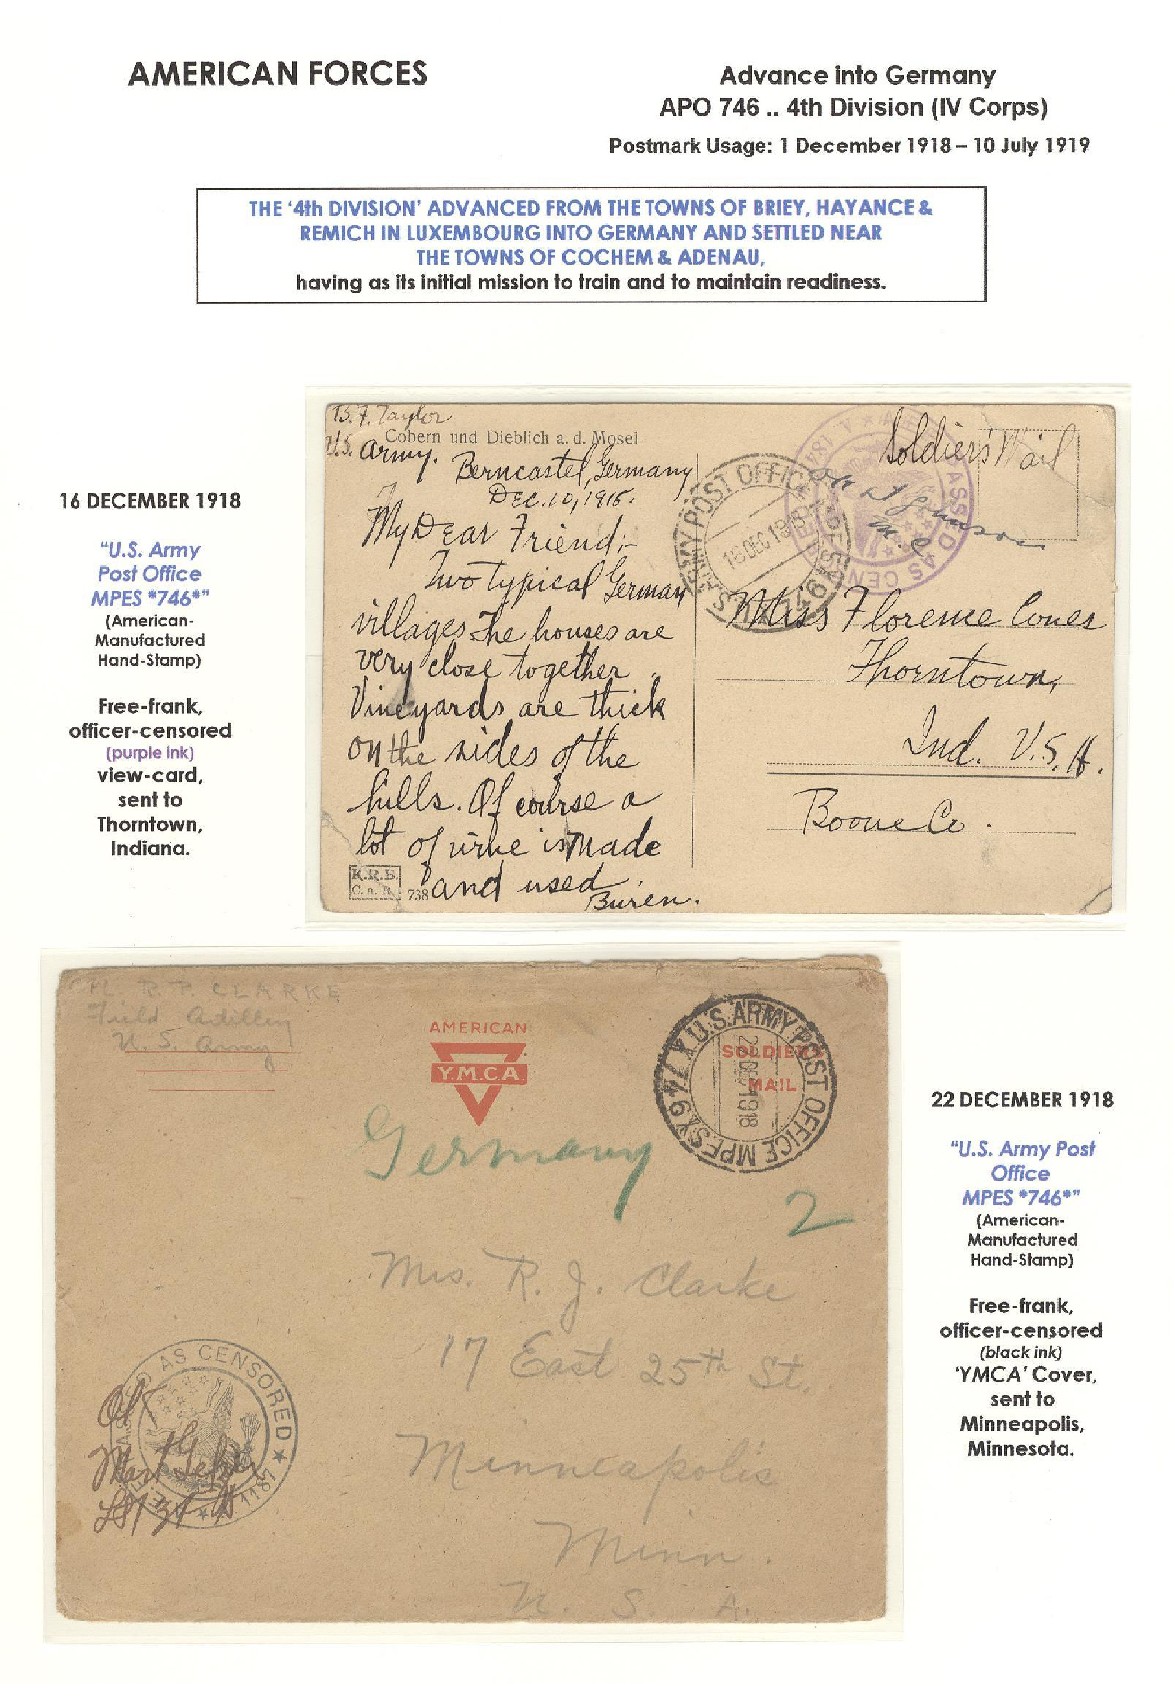 AMERICAN FORCES
Advance into Germany
APO 746 .. 4th Division (IV Corps)
Postmark Usage: 1 December 1918 – 10 July 1919
THE ‘4th DIVISION’ ADVANCED FROM THE TOWNS OF BRIEY, HAYANCE &
REMICH IN LUXEMBOURG INTO GERMANY AND SETTLED NEAR
THE TOWNS OF COCHEM & ADENAU,
having as its initial mission to train and to maintain readiness.
16 DECEMBER 1918
“U.S. Army
Post Office
MPES *746*”
(American-
Manufactured
Hand-Stamp)
Free-frank,
officer-censored
(purple ink)
view-card,
sent to
Thorntown,
Indiana.
B.F. Taylor
U.S. Army.
Cobern und Dieblich a. d. Mosel
Berncastel, Germany
Dec. 10, 1918.
My Dear Friend:-
Two typical German
villages. The houses are
very close together.
Vineyards are thick
on the sides of the
hills. Of course a
lot of wine is made
and used.
Buren.
K.R.B.
738
U.S. ARMY POST OFFICE
746
DEC 1918
PASSED AS CENSORED
Soldier's Mail
Miss Florence Coues
Thorntown,
Ind. U.S.A.
Boone Co.
R. P. CLARKE
Field Artillery
U. S. Army
AMERICAN
Y.M.C.A.
SOLDIERS
MAIL
U.S. ARMY POST OFFICE MPES X 746 X
22 DEC 1918
Germany
2
Mrs. R. J. Clarke
17 East 25th St.
Minneapolis
Minn.
U. S. A.
PASSED AS CENSORED
A. 1187
OK
22 DECEMBER 1918
“U.S. Army Post
Office
MPES *746*”
(American-
Manufactured
Hand-Stamp)
Free-frank,
officer-censored
(black ink)
‘YMCA’ Cover,
sent to
Minneapolis,
Minnesota.